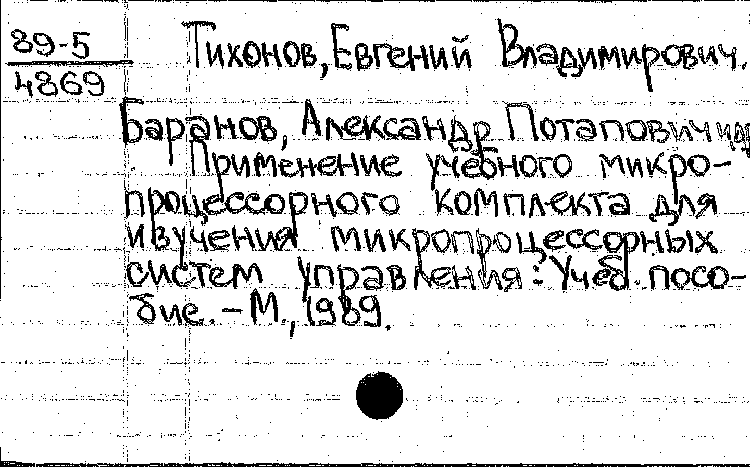 89-5
4869
Тихонов, Евгений Владимирович.
Баранов, Александр Потапович и др.
Применение учебного микро-
процессорного комплекта для
изучения микропроцессорных
систем управления: Учеб. посо-
бие. - М., 1989.